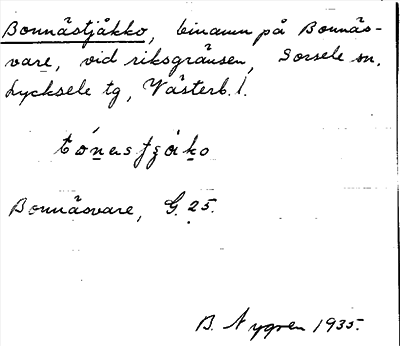 Bonnästjåkko, binamn på Bonnäs-
vare, vid riksgränsen, Sorsele sn,
Lycksele tg, Västerb. l.
Bonnäsvare, G. 25.
B. Nygren 1935.